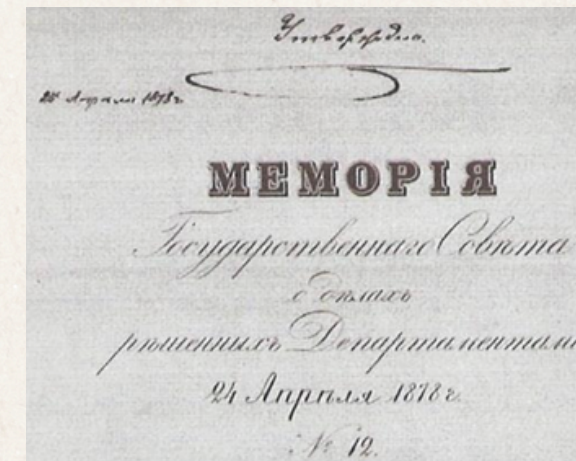 Утверждено.
25 Апрѣля 1878 г.
МЕМОРІЯ
Государственнаго Совѣта
о дѣлахъ
рѣшенныхъ Департаментами
24 Апрѣля 1878 г.
№ 12.